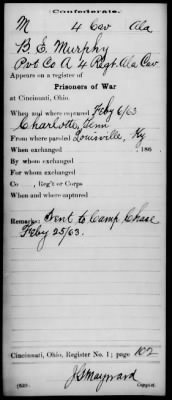 Confederate.
M 4 Cav Ala
B. E. Murphy
Pvt Co A 4 Regt Ala Cav
Appears on a register of
Prisoners of War
at Cincinnati, Ohio.
When and where captured Feby 6/63
Charlotte, Tenn
From where paroled Louisville, Ky
When exchanged 186 .
By whom exchanged
For whom exchanged
Co. , Reg't or Corps
When and where captured
Remarks: Sent to Camp Chase
Feby 25/63.
Cincinnati, Ohio, Register No. 1; page 102
J S Maynard
Copyist.